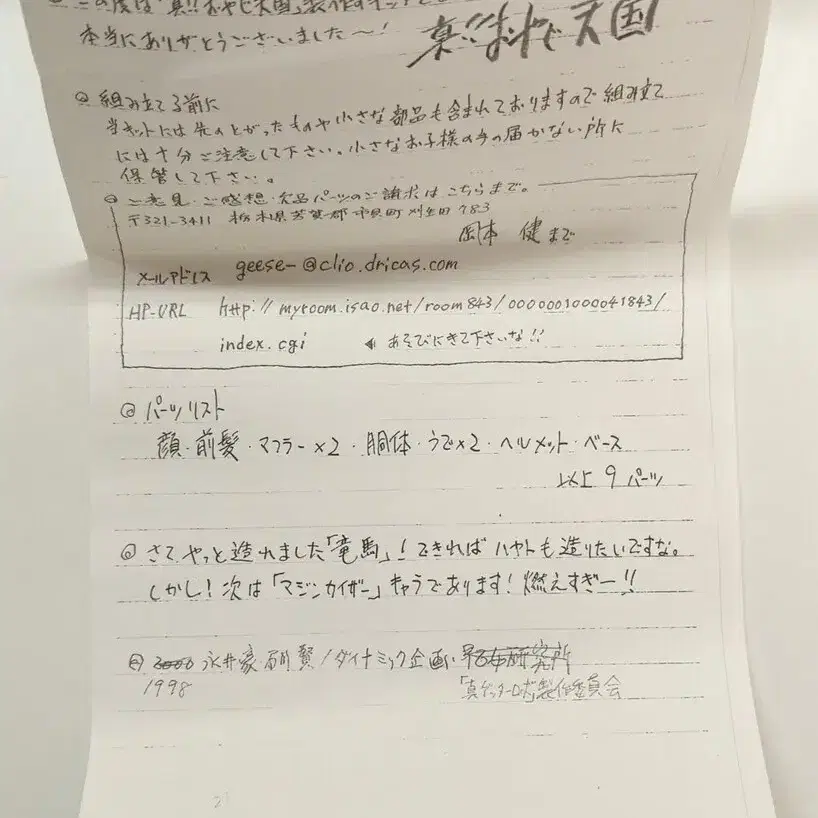 この度は「真!!おやじ天国」製作のキットを
本当にありがとうございました〜!
真!!おやじ天国
◎ 組み立てる前に
当キットには先のとがったものや小さな部品も含まれておりますので組み立て
には十分ご注意して下さい。小さなお子様の手の届かない所に
保管して下さい。
◎ ご意見・ご感想・欠品パーツのご請求はこちらまで。
〒321-3411 栃木県芳賀郡市貝町刈生田783
岡本 健まで
メールアドレス geese-@clio.dricas.com
HP-URL http://myroom.isao.net/room843/0000001000041843/
index.cgi ◀ あそびにきて下さいな!!
◎ パーツリスト
顔・前髪・マフラー×2・胴体・うで×2・ヘルメット・ベース
以上 9 パーツ
◎ さてやっと造れました「竜馬」!できればハヤトも造りたいですな。
しかし!次は「マジンカイザー」キャラであります!燃えすぎー!!
永井豪・石川 賢/ダイナミック企画・早乙女研究所
1998
「真ゲッターロボ」製作委員会